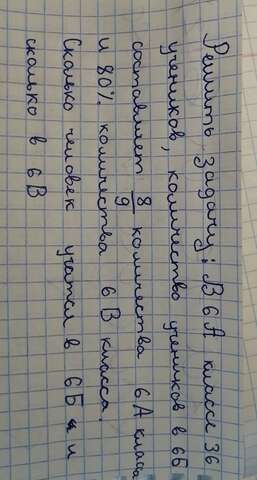 Решить задачу: В 6А классе 36
учеников, количество учеников в 6Б
составляет 8/9 количества 6А класса
и 80% количества 6В класса.
Сколько человек учатся в 6Б и
сколько в 6В